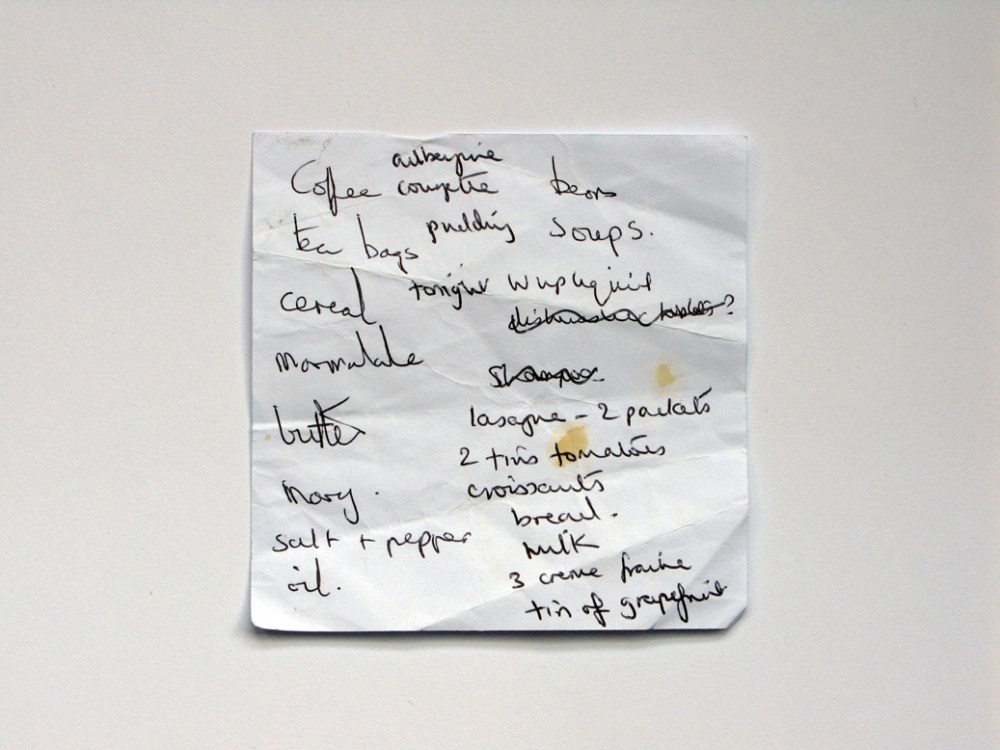 aubergine
Coffee
courgette
beans
tea bags
pudding
soups.
cereal
tonight
w up liquid
marmalade
butter
lasagne - 2 packets
2 tins tomatoes
croissants
bread.
salt + pepper
milk
oil.
3 creme fraiche
tin of grapefruit